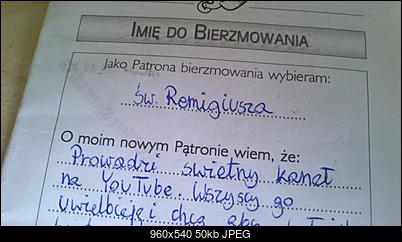 IMIĘ DO BIERZMOWANIA
Jako Patrona bierzmowania wybieram:
św. Remigiusza
O moim nowym Patronie wiem, że:
Prowadzi świetny kanał
na YouTube. Wszyscy go
uwielbiają i chcą
960x540 50kb JPEG